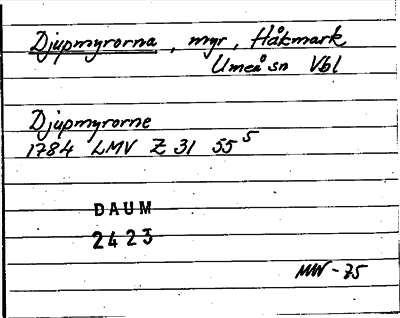 Djupmyrorna, myr, Håkmark
Umeå sn Vbl
Djupmyrorne
1784 LMV Z 31 55 5
DAUM
2423
MW-75